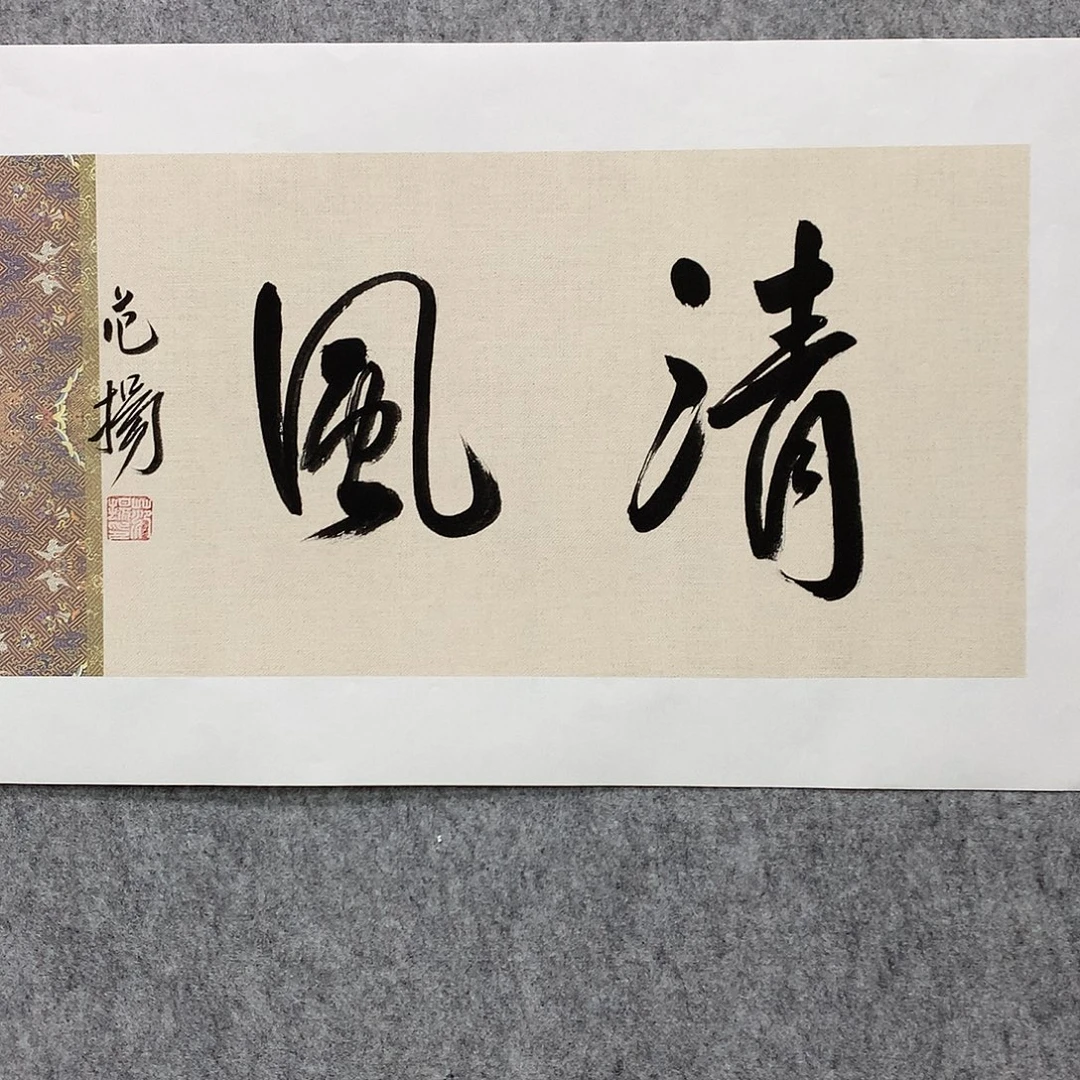 清風
范揚